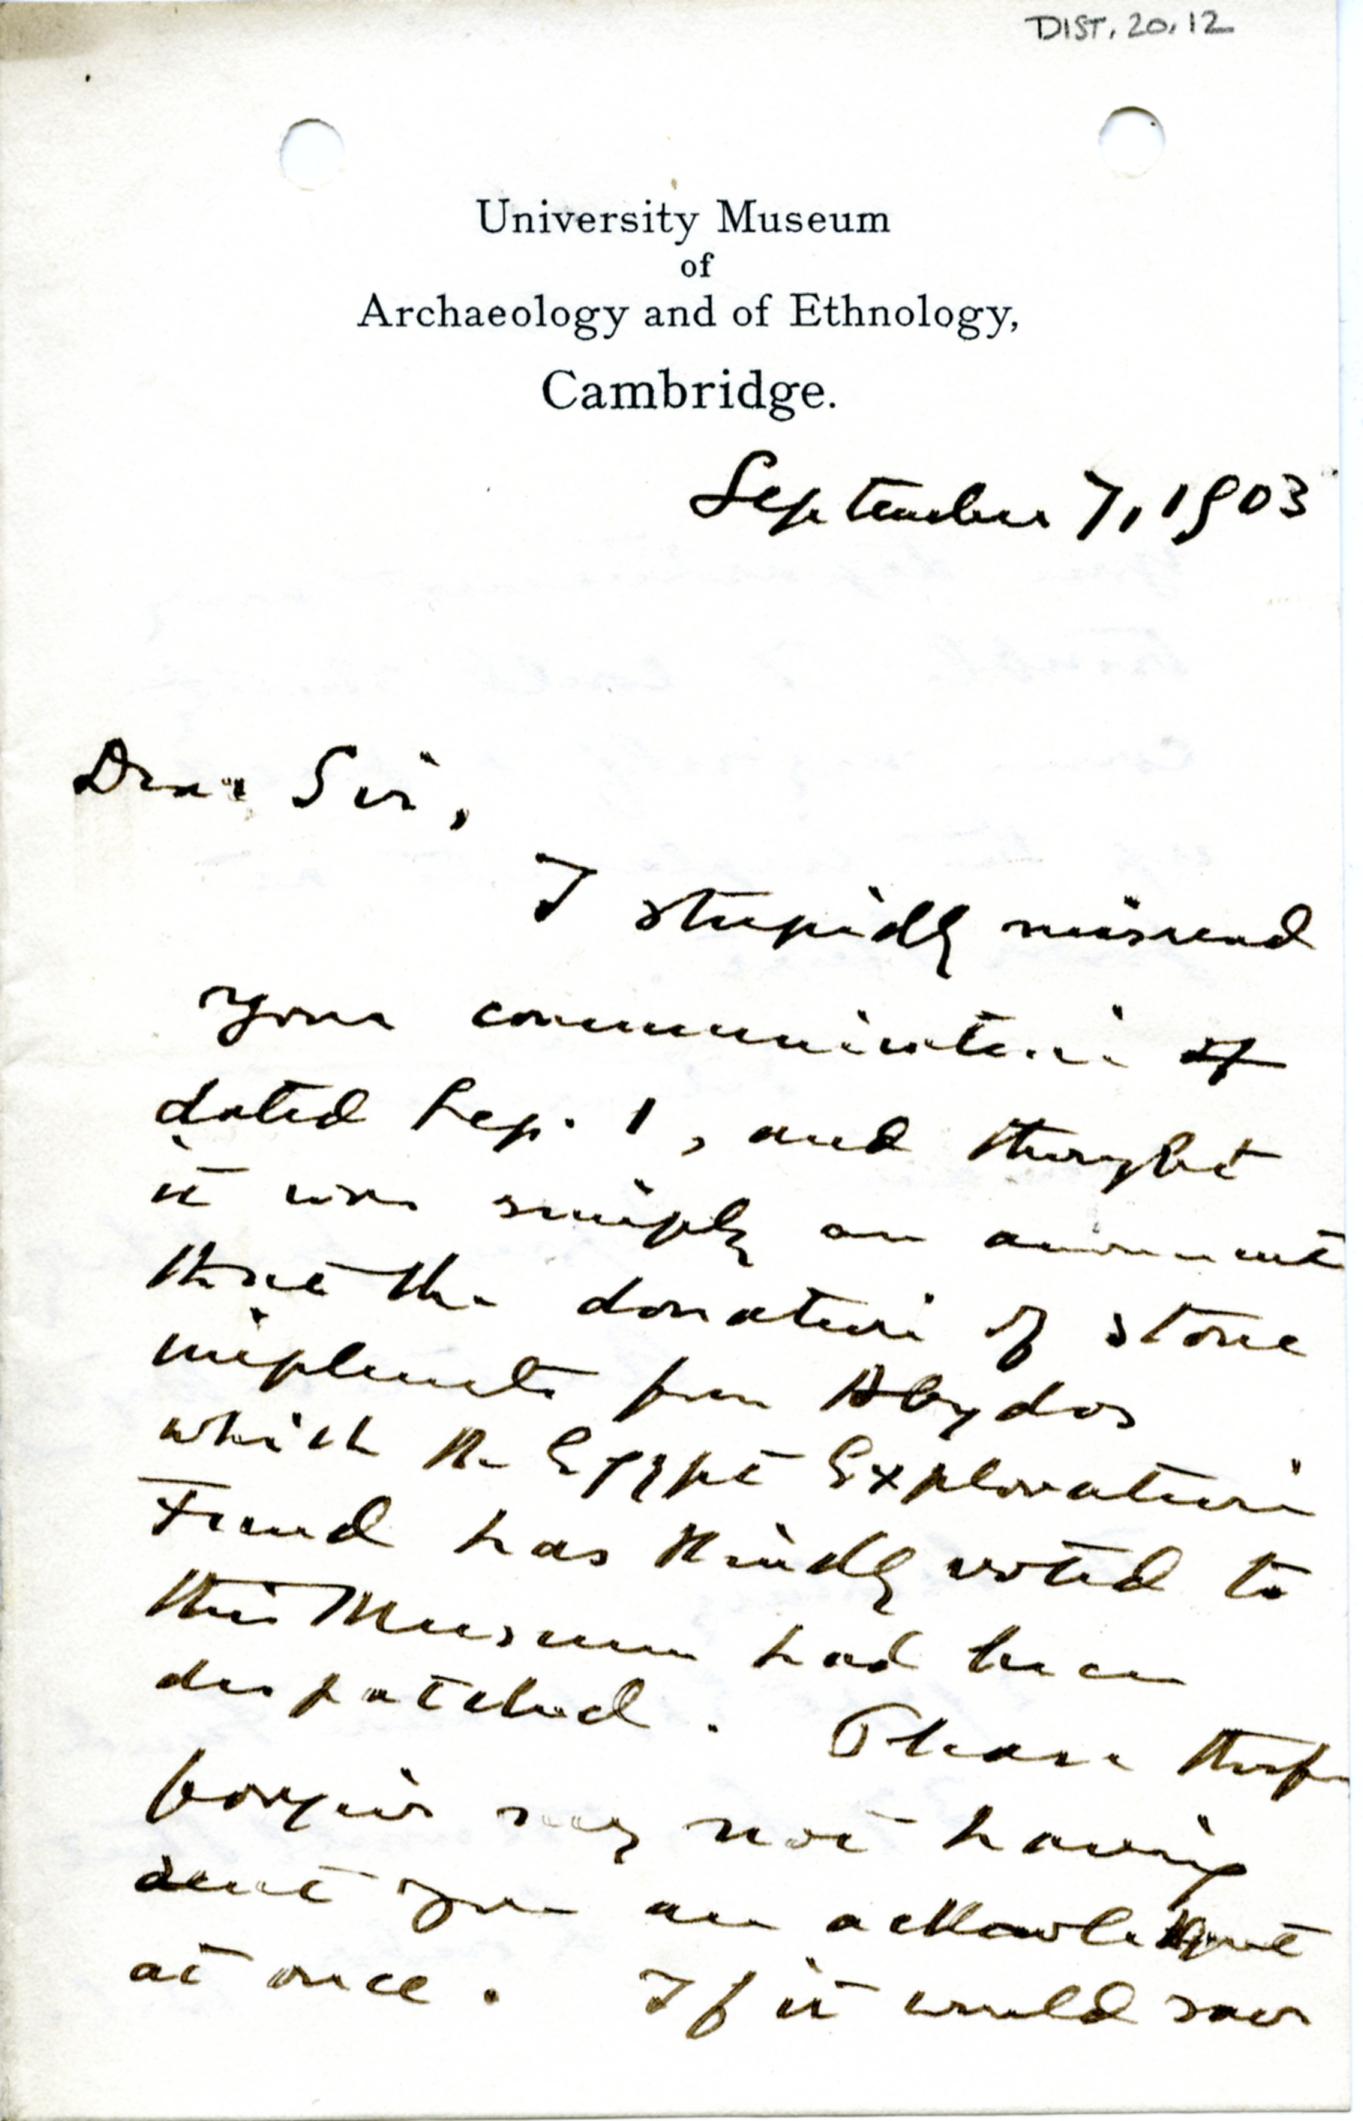 DIST. 20.12
University Museum
of
Archaeology and of Ethnology,
Cambridge.
September 7, 1903
Dear Sir,
I stupidly misread
your communication of
dated Sep. 1, and thought
it was simply an
that the donation of stone
implements from Abydos
which the Egypt Exploration
Fund has kindly voted to
this Museum had been
despatched. Please
forgive my not having
sent you an acknowledgment
at once. If it would save